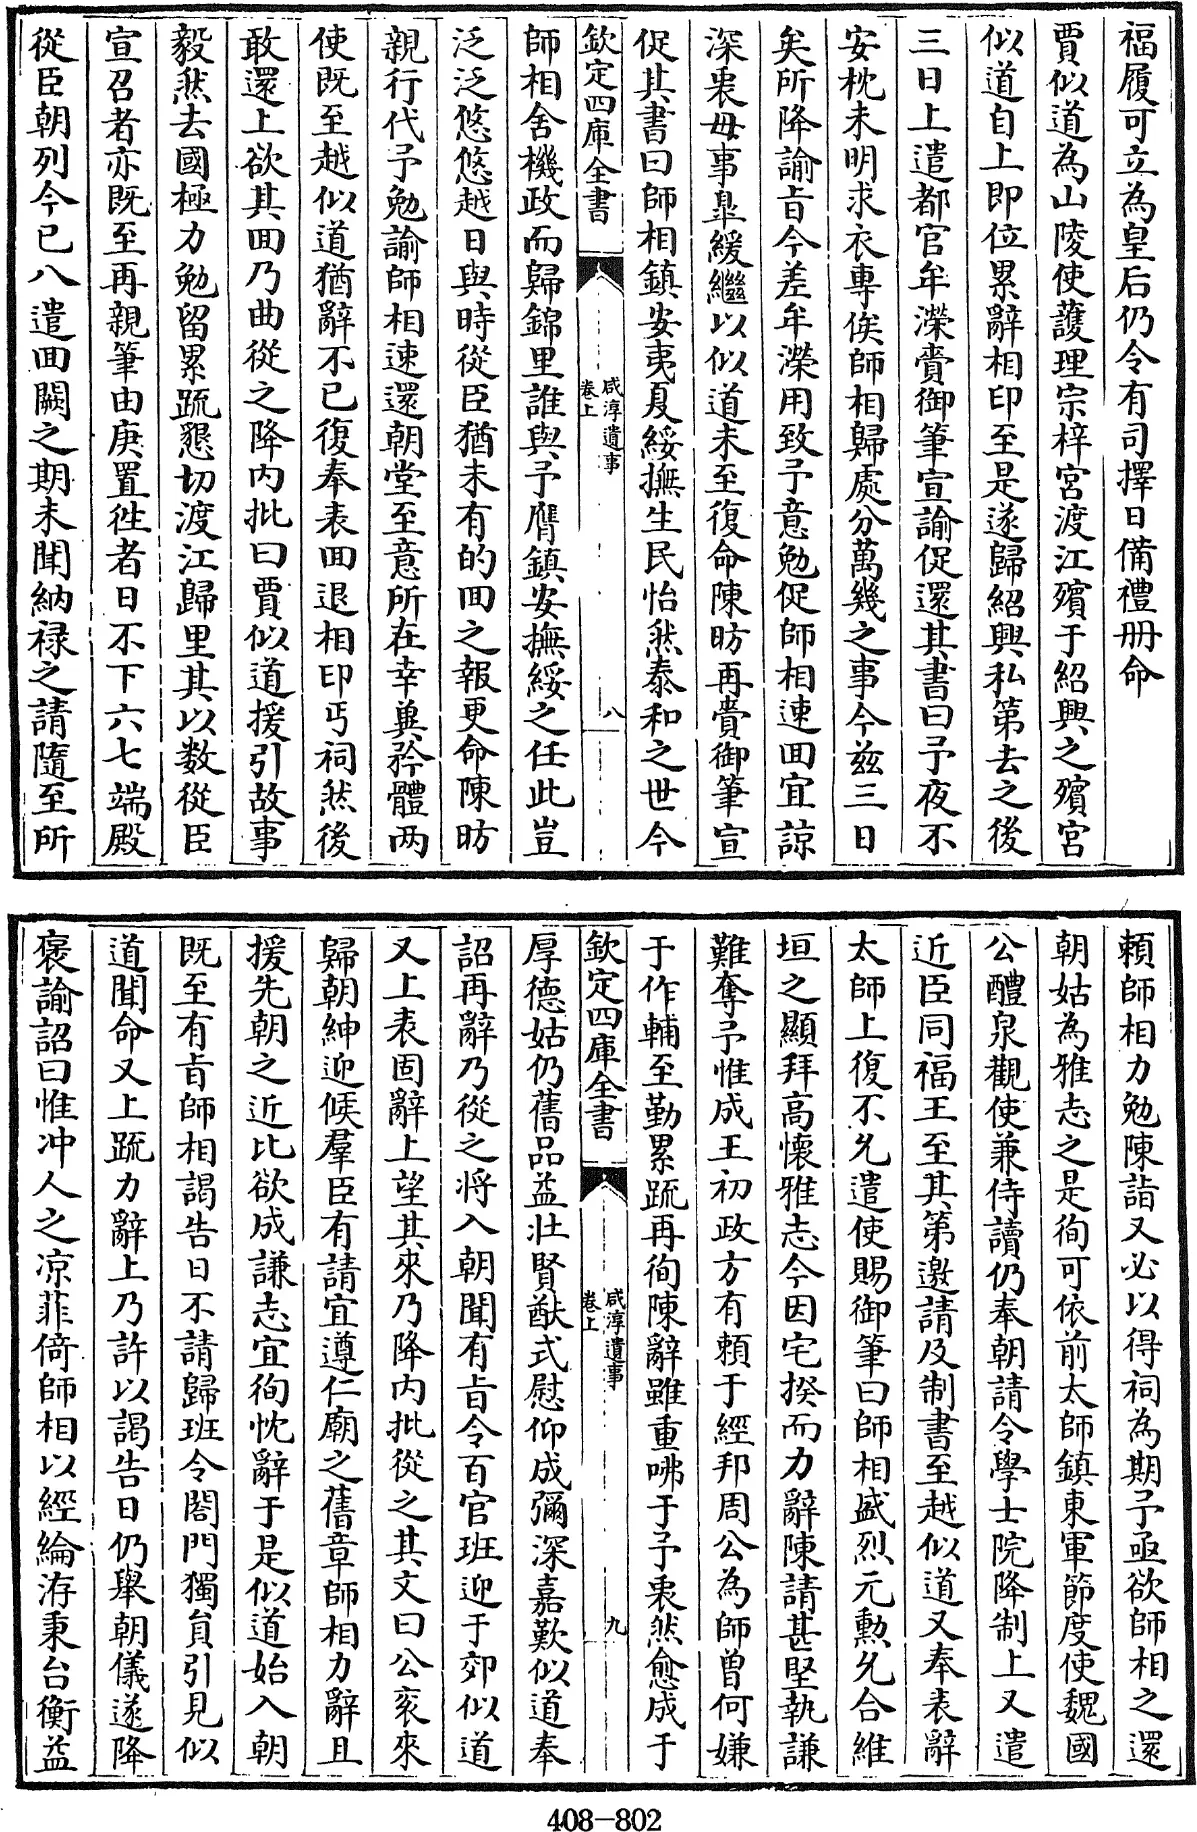 福履可立為皇后仍令有司擇日備禮冊命
賈似道為山陵使護理宗梓宮渡江殯于紹興之殯宮
似道自上即位累辭相印至是遂歸紹興私第去之後
三日上遣都官牟濚賫御筆宣諭促還其書曰予夜不
安枕未明求衣專俟師相歸處分萬幾之事今兹三日
矣所降諭旨今差牟濚用致予意勉促師相速回宜諒
深衷毋事辠緩繼以似道未至復命陳昉再賫御筆宣
促其書曰師相鎮安夷夏綏撫生民怡然泰和之世今
欽定四庫全書
咸淳遺事
卷上
八
師相舍機政而歸錦里誰與予膺鎮安撫綏之任此豈
泛泛悠悠越日與時從臣猶未有的回之報更命陳昉
親行代予勉諭師相速還朝堂至意所在幸冀矜體兩
使既至越似道猶辭不已復奉表回退相印丐祠然後
敢還上欲其回乃曲從之降内批曰賈似道援引故事
毅然去國極力勉留累疏懇切渡江歸里其以數從臣
宣召者亦既至再親筆由庚置徃者日不下六七端殿
從臣朝列今已八遣回闕之期未聞納禄之請隨至所
頼師相力勉陳詣又必以得祠為期予亟欲師相之還
朝姑為雅志之是徇可依前太師鎮東軍節度使魏國
公醴泉觀使兼侍讀仍奉朝請令學士院降制上又遣
近臣同福王至其第邀請及制書至越似道又奉表辭
太師上復不允遣使賜御筆曰師相盛烈元勳允合維
垣之顯拜高懷雅志今因宅揆而力辭陳請甚堅執謙
難奪予惟成王初政方有頼于經邦周公為師曾何嫌
于作輔至勤累疏再徇陳辭雖重咈于予衷然愈成于
欽定四庫全書
咸淳遺事
卷上
九
厚德姑仍舊品益壯賢猷式慰仰成彌深嘉歎似道奉
詔再辭乃從之將入朝聞有旨令百官班迎于郊似道
又上表固辭上望其來乃降内批從之其文曰公衮來
歸朝紳迎候羣臣有請宜遵仁廟之舊章師相力辭且
援先朝之近比欲成謙志宜徇忱辭于是似道始入朝
既至有旨師相謁告日不請歸班令閤門獨員引見似
道聞命又上疏力辭上乃許以謁告日仍舉朝儀遂降
褒諭詔曰惟冲人之凉菲倚師相以經綸洊秉台衡益
408-802